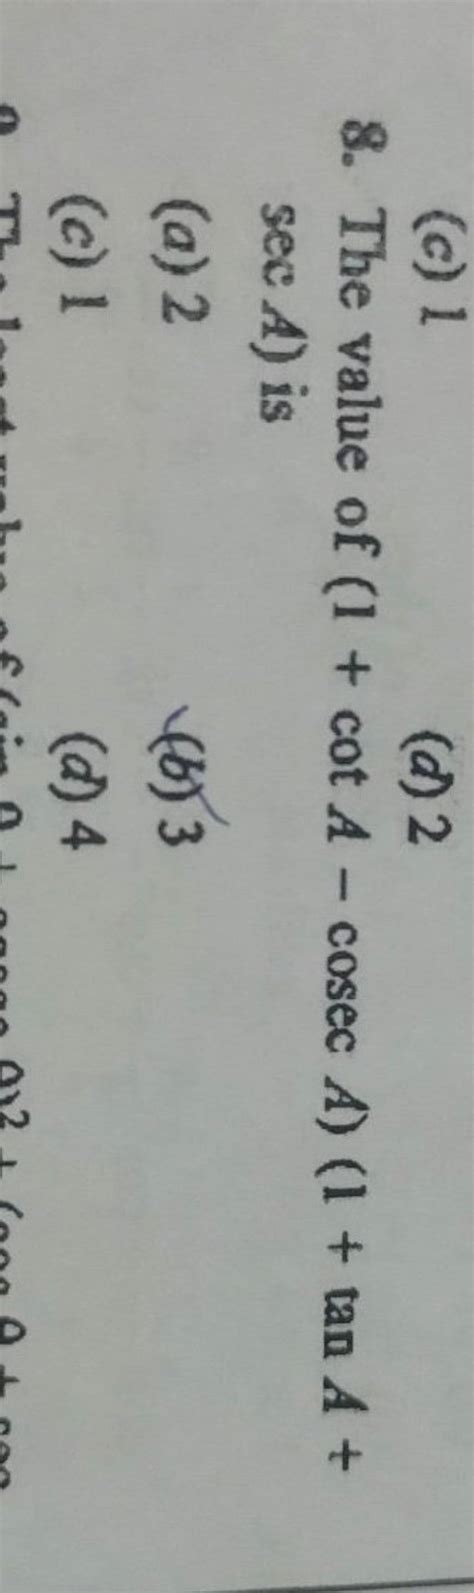 (c) 1 (d) 2
8. The value of (1 + cot A – cosec A) (1 + tan A +
sec A) is
(a) 2 (b) 3
(c) 1 (d) 4